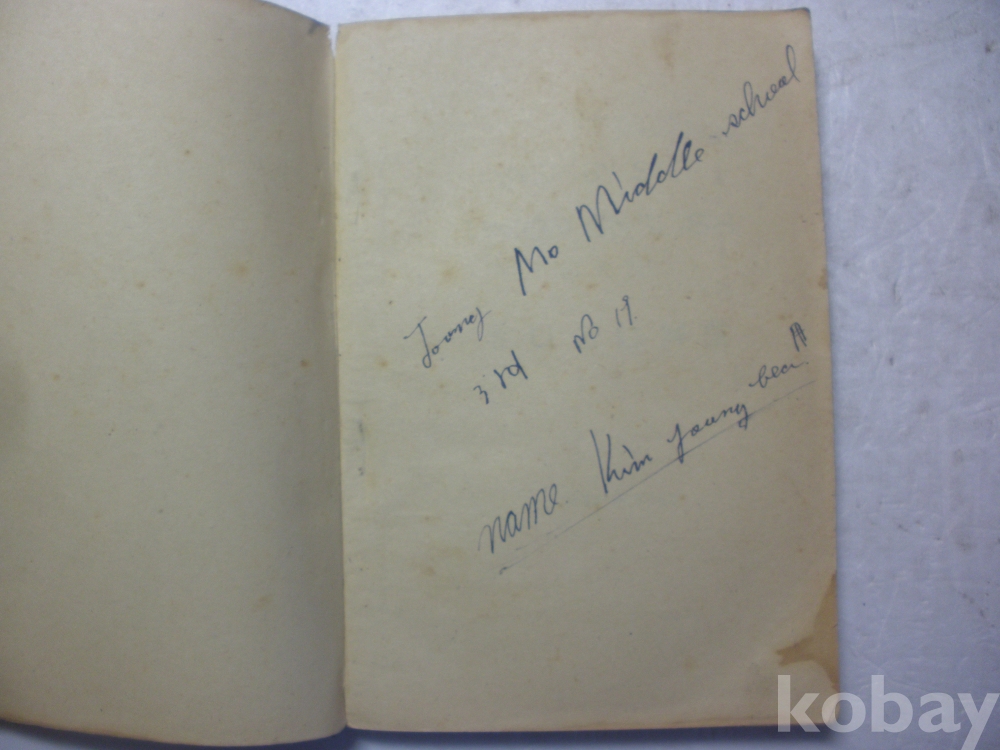 Joong Mo Middle school
3rd No 19.
name. Kim young
kobay